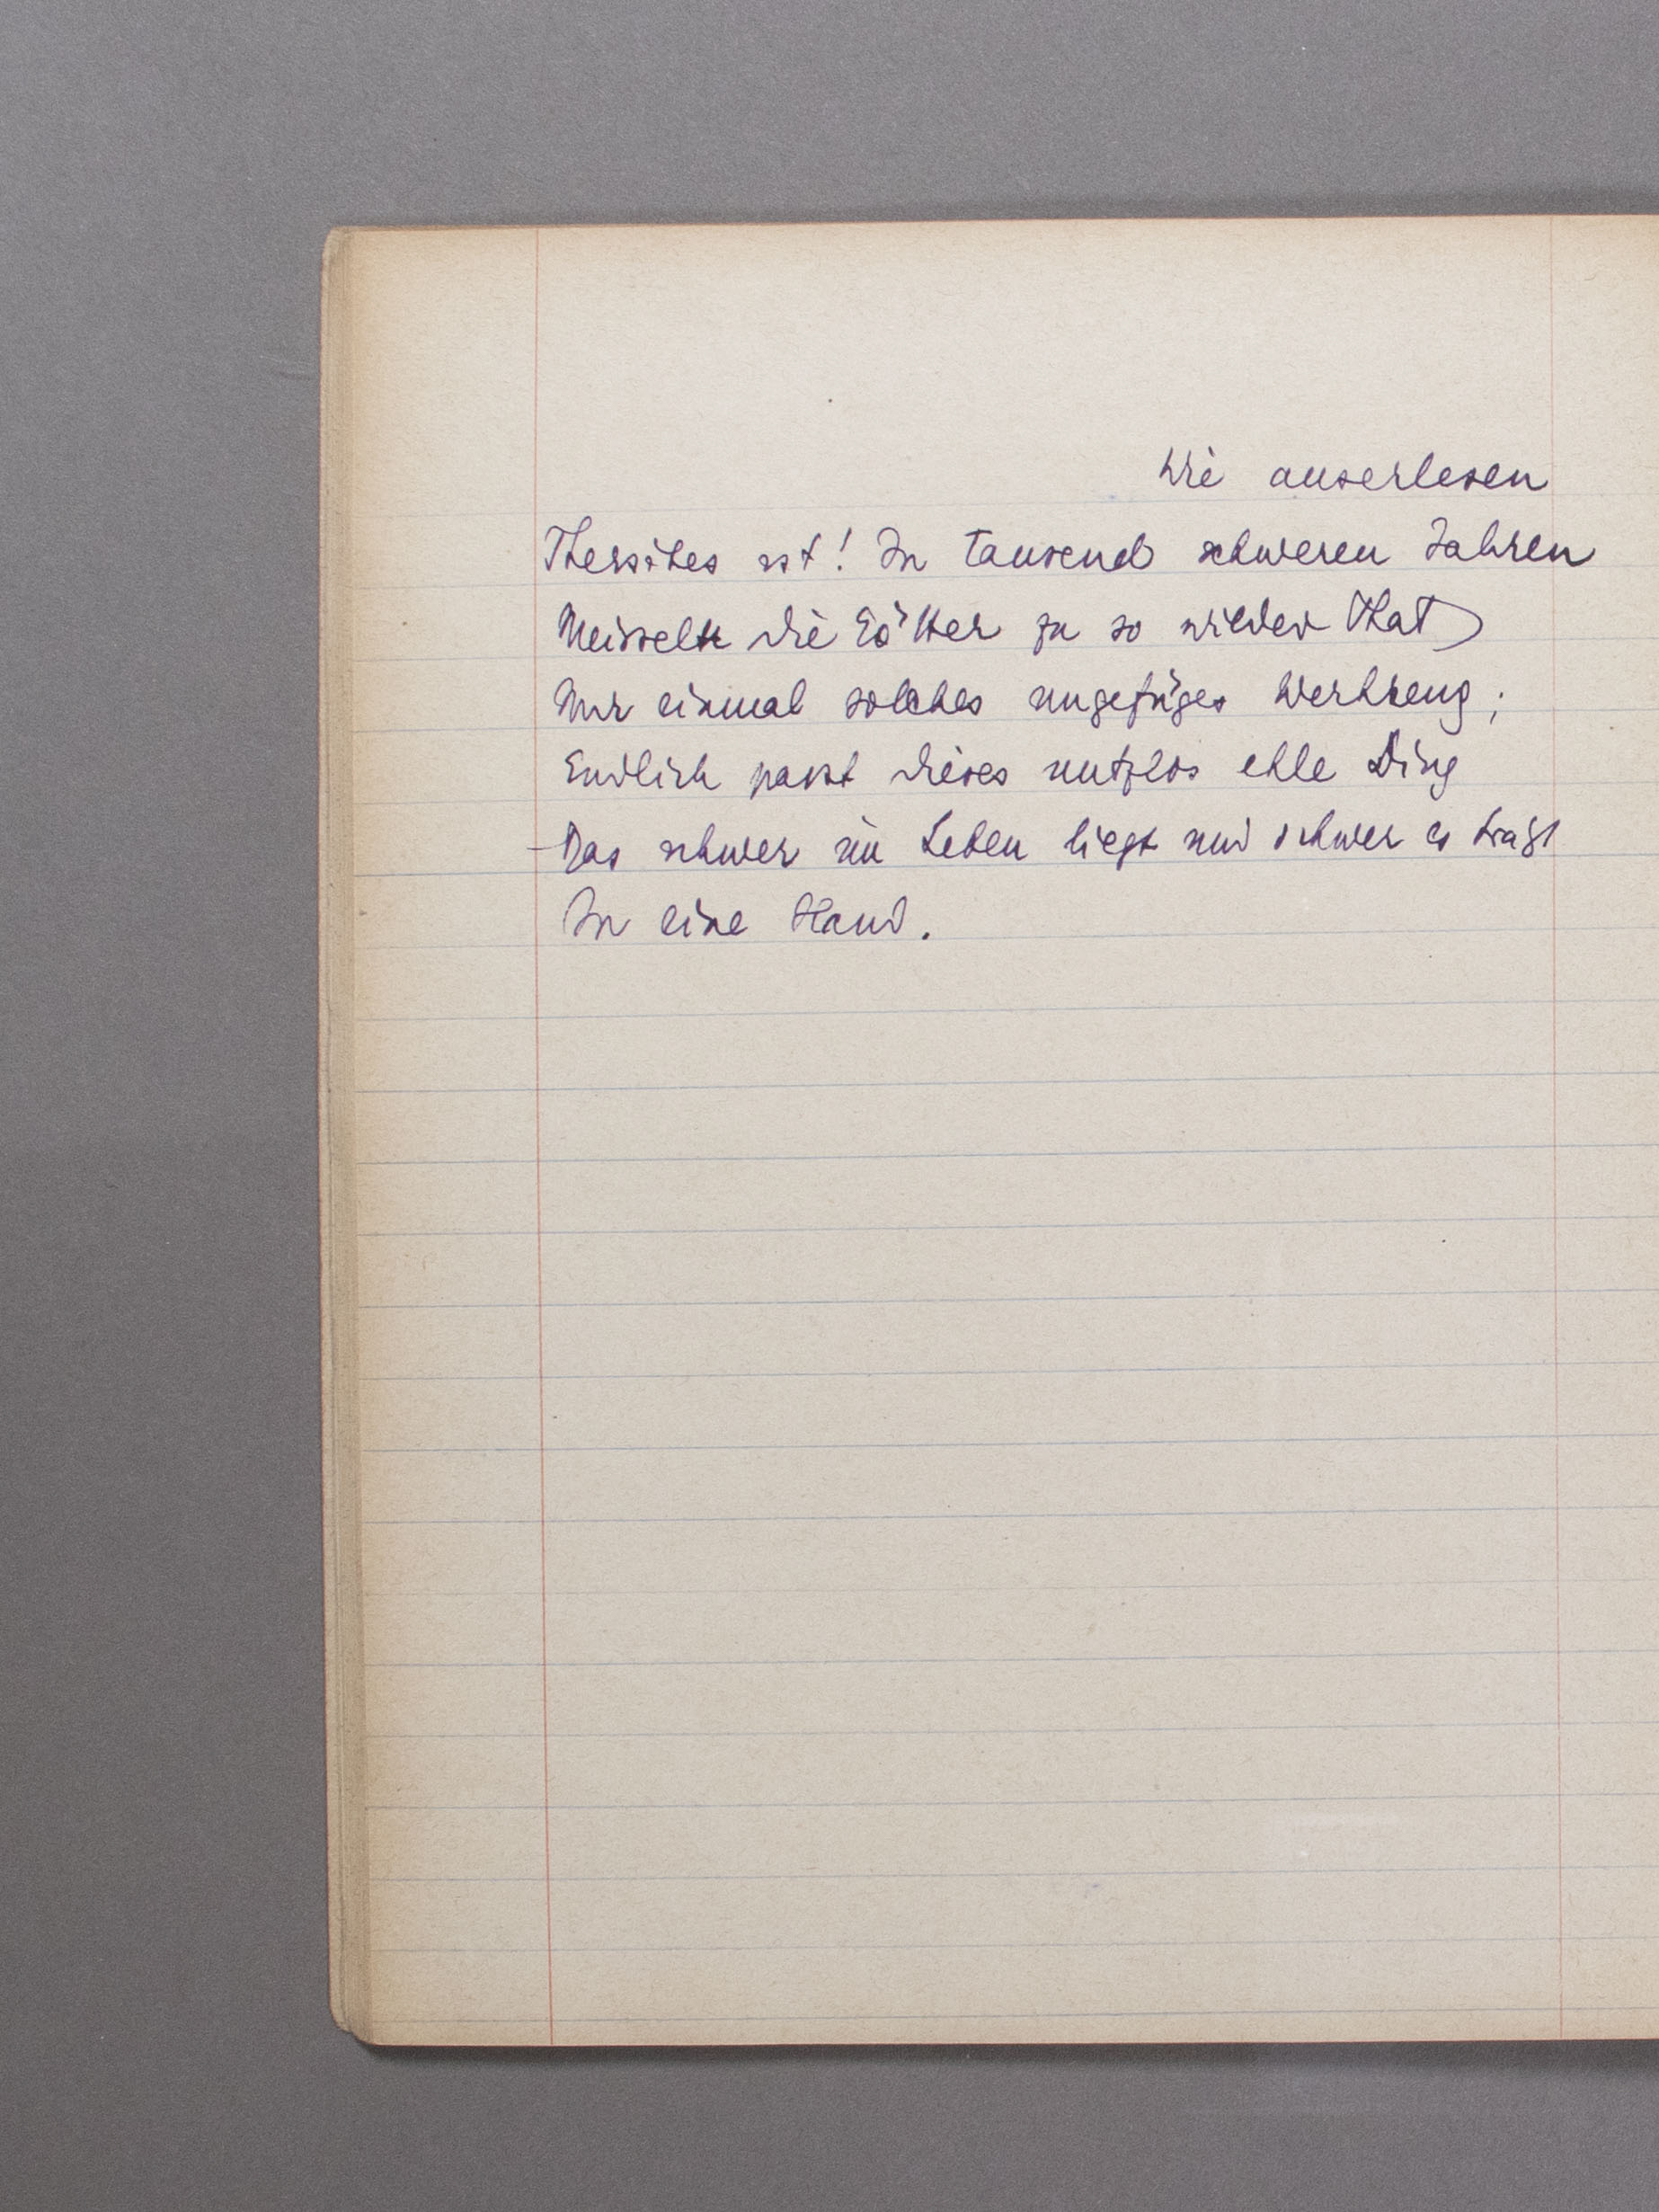 Wie auserlesen
Thersites ist! In tausend schweren Jahren
Meisseln die Götter zu so wilder That
Nur einmal solches ungefüges Werkzeug;
Endlich passt dieses nutzlos ekle Ding
Das schwer im Leben liegt und schwer es trägt
In eine Hand.